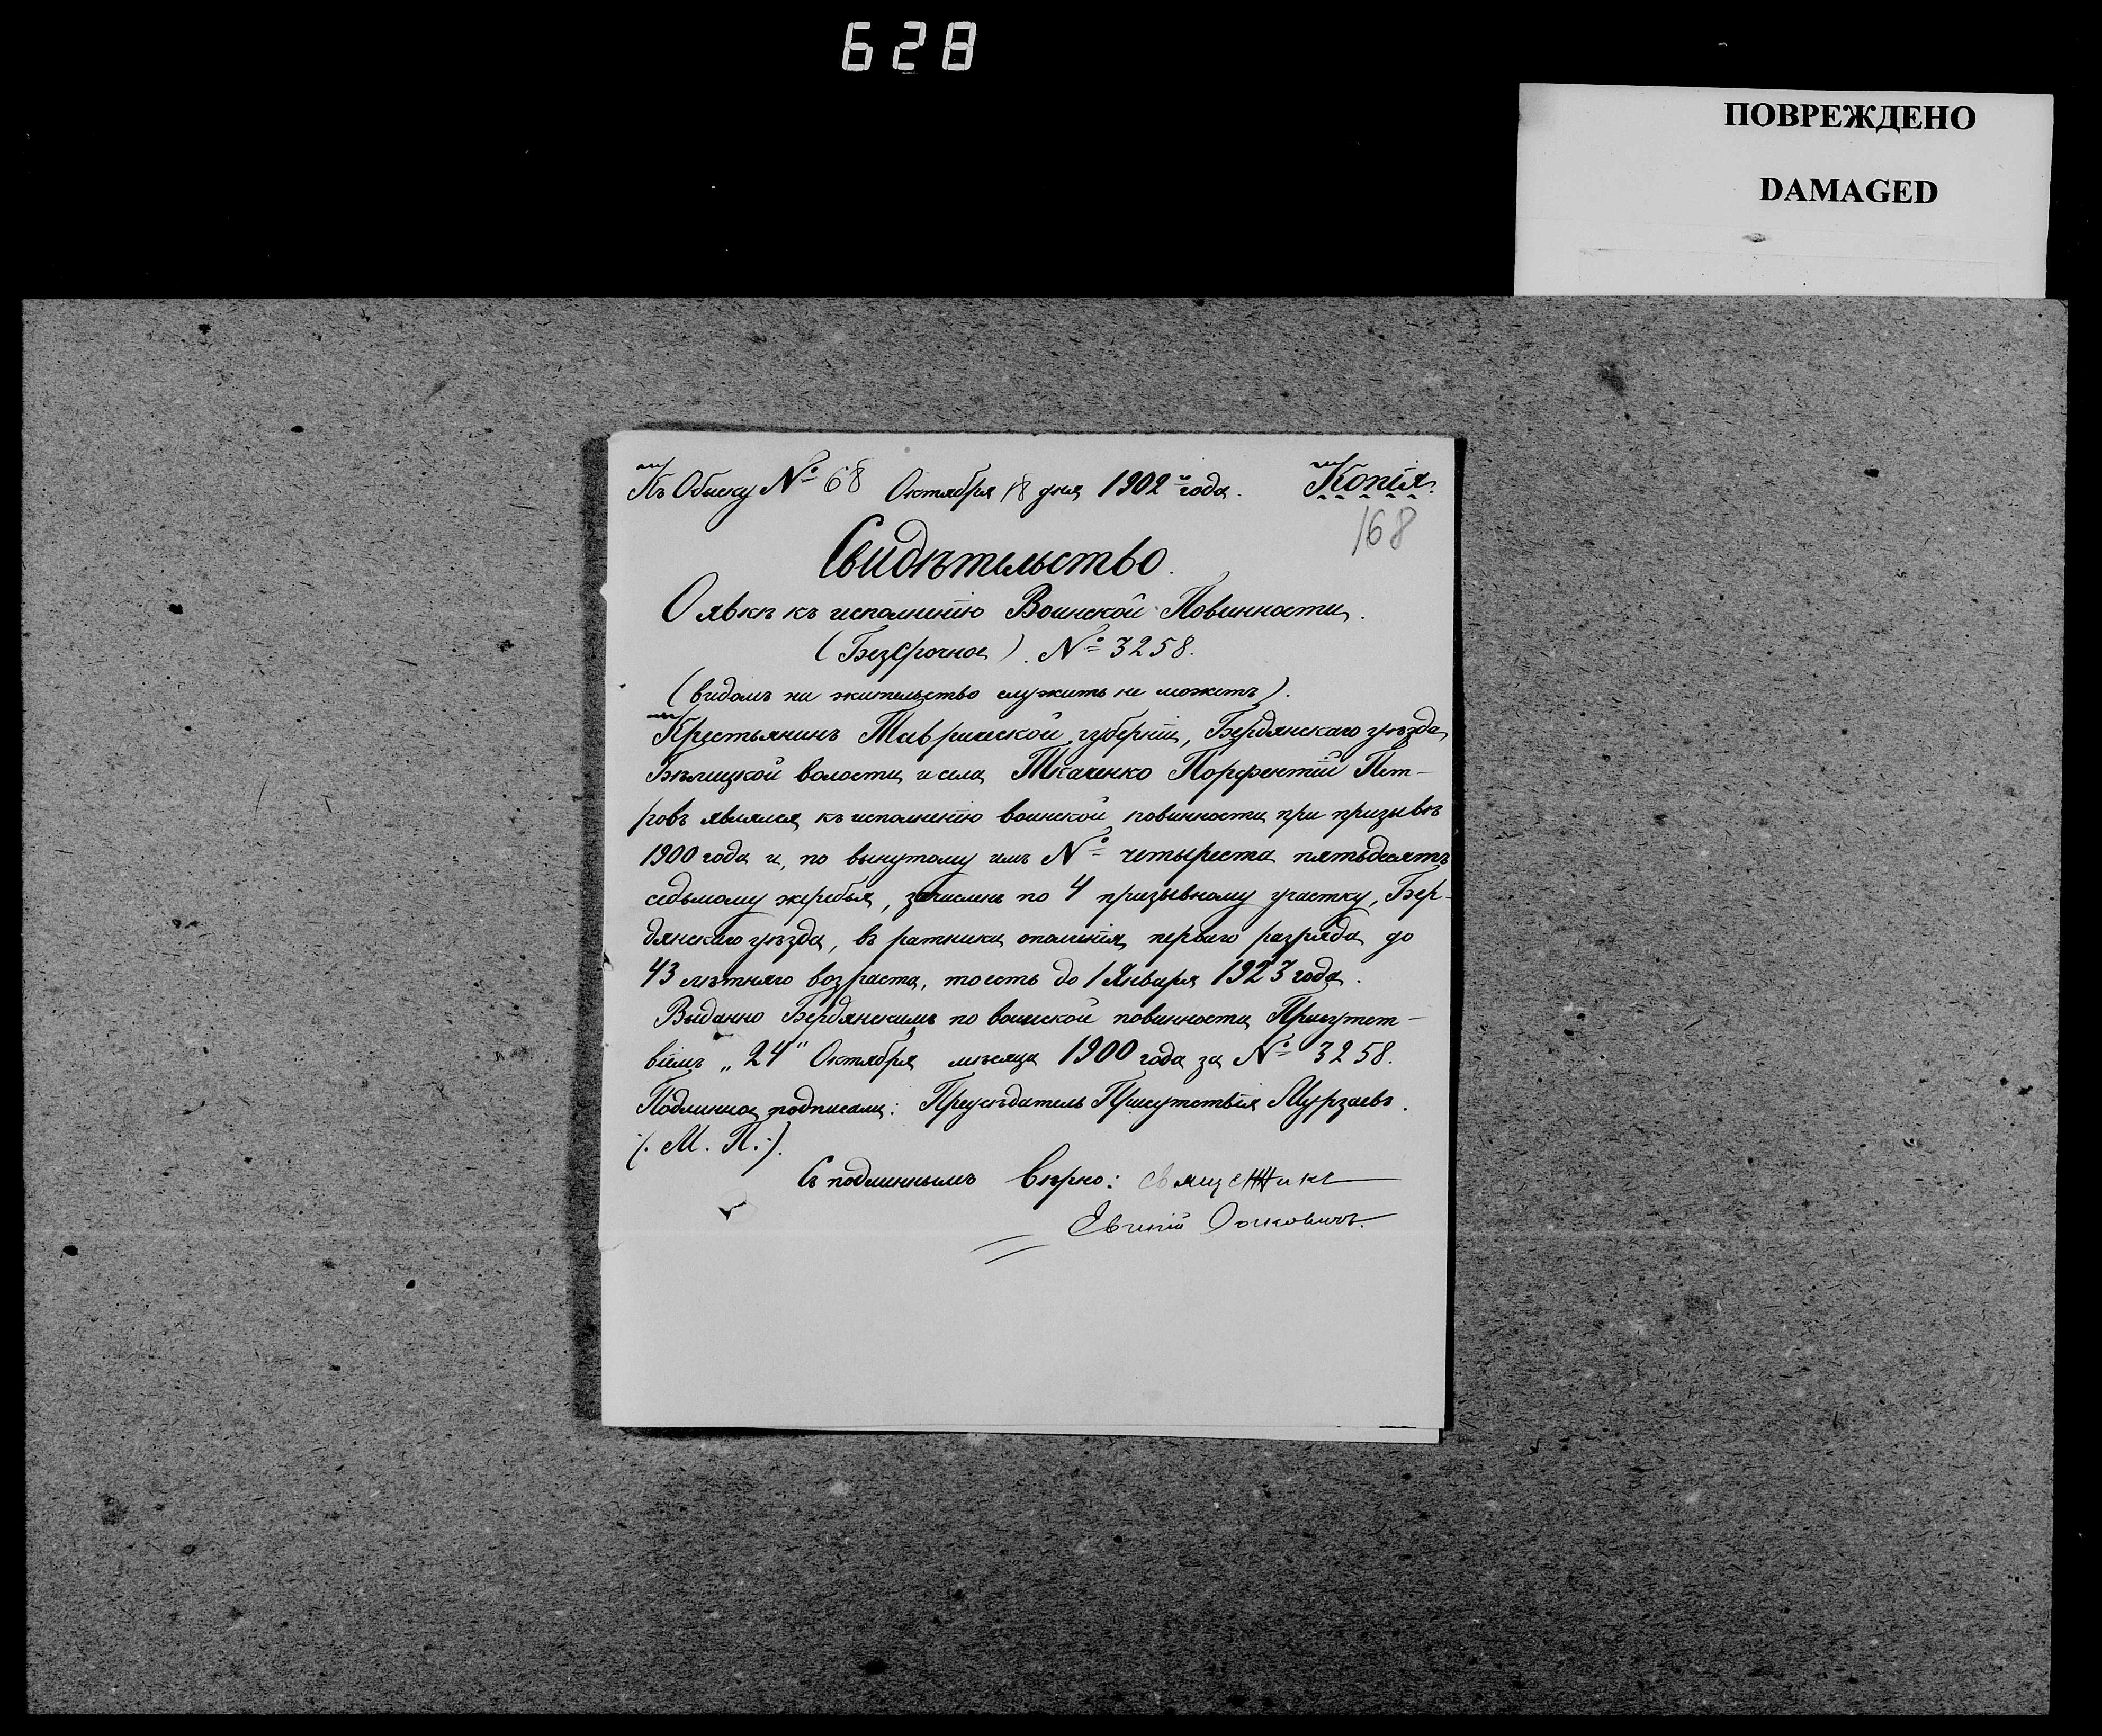 628
ПОВРЕЖДЕНО
DAMAGED
Къ Обыску № 68 Октября 18 дня 1902 года. Копія.
168
Свидѣтельство.
О явкѣ къ исполненію Воинской Повинности.
(Безсрочное). № 3258.
(видомъ на жительство служить не можетъ).
Крестьянинъ Таврической губерніи, Бердянскаго уѣзда
волости и села Ткаченко Порфентій Пет-
ровъ являлся къ исполненію воинской повинности при призывѣ
1900 года и, по вынутому имъ № четыреста пятьдесятъ
седьмому жеребья, зачисленъ по 4 призывному участку, Бер-
дянскаго уѣзда, въ ратники ополченія перваго разряда до
43 лѣтняго возраста, то есть до 1 Января 1923 года.
Выданно Бердянскимъ по воинской повинности Присутст-
віемъ „24" Октября мѣсяца 1900 года за № 3258.
Подлинное подписали: Предсѣдатель Присутствія Мурзаевъ.
(: М. П. :).
Съ подлиннымъ вѣрно: священникъ
Евгеній